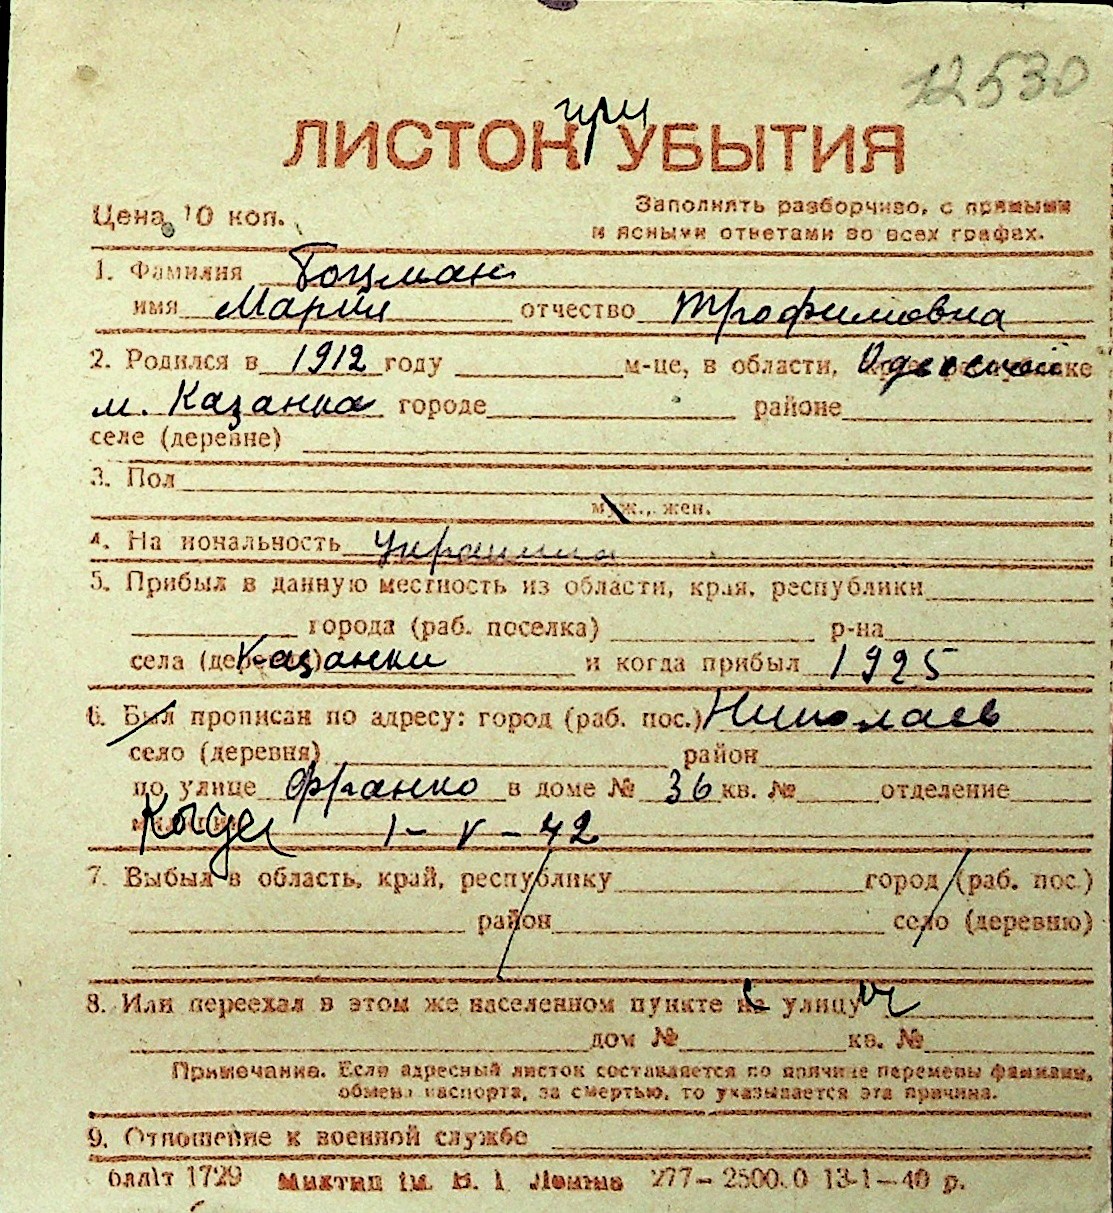 12530
при
ЛИСТОК УБЫТИЯ
Цена 10 коп.
Заполнять разборчиво, с прямыми
и ясными ответами во всех графах.
1. Фамилия Гоцман
имя Мария отчество Трофимовна
2. Родился в 1912 году м-це, в области, Одесской
м. Казанка городе районе
селе (деревне)
3. Пол
муж., жен.
4. Национальность Украинка
5. Прибыл в данную местность из области, края, республики
города (раб. поселка) р-на
села (деревни) Казанки и когда прибыл 1925
6. Был прописан по адресу: город (раб. пос.) Николаев
село (деревня) район
по улице Франко в доме № 36 кв. № отделение
Когда 1-V-42
7. Выбыл в область, край, республику город (раб. пос.)
район село (деревню)
8. Или переехал в этом же населенном пункте с улицы
дом № кв. №
Примечание. Если адресный листок составляется по причине перемены фамилии,
обмена паспорта, за смертью, то указывается эта причина.
9. Отношение к военной службе
1729 277—2500.0 13-1—40 р.